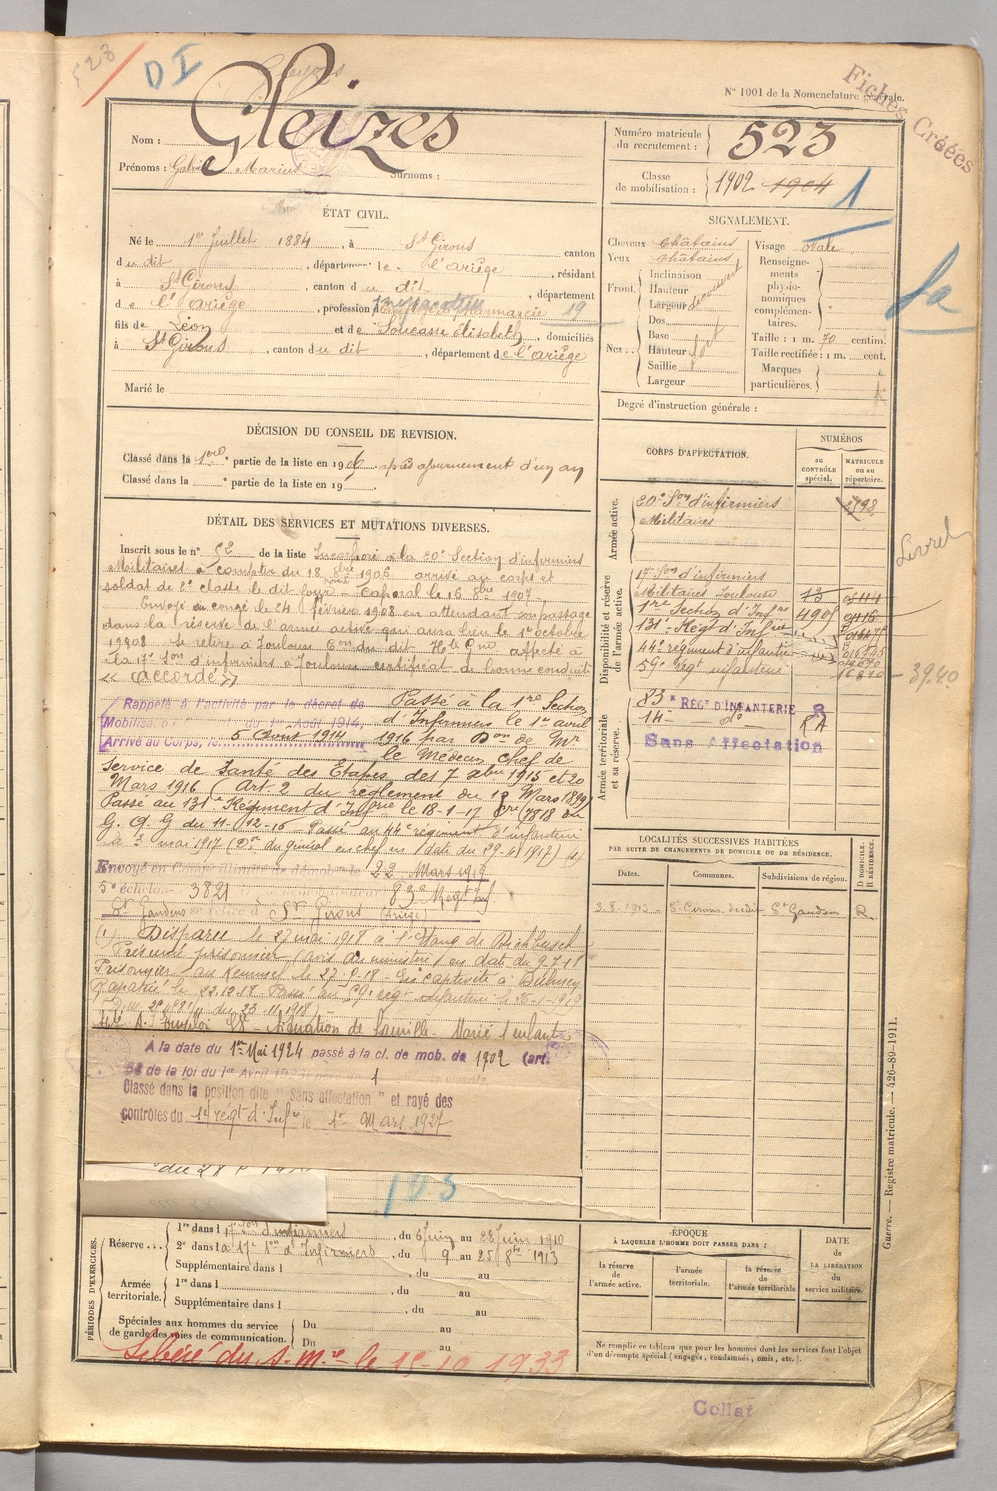 523
D I
N° 1001 de la Nomenclature générale.
Fiches Créées
Nom : Gleizes
Prénoms : Gabriel Marius Surnoms :
Numéro matricule du recrutement : 523
Classe de mobilisation : 1902 1904
1
ÉTAT CIVIL.
Né le 1er Juillet 1884, à St Girons canton
du dit, département de l'Ariège, résidant
à St Girons, canton du dit, département
de l'Ariège, profession pharmacie 19
fils de Léon et de Soucasse Elisabeth, domiciliés
à St Girons, canton du dit, département de l'Ariège
Marié le
SIGNALEMENT.
Cheveux châtains
Yeux châtains
Front. Inclinaison
Hauteur
Largeur découvert
Nez.. Dos
Base
Hauteur fort
Saillie
Largeur
Visage ovale
Renseignements physionomiques complémentaires.
Taille : 1 m. 70 centim.
Taille rectifiée : 1 m. cent.
Marques particulières.
Degré d'instruction générale :
DÉCISION DU CONSEIL DE REVISION.
Classé dans la 1ère partie de la liste en 1906 après ajournement d'un an
Classé dans la e partie de la liste en 19
DÉTAIL DES SERVICES ET MUTATIONS DIVERSES.
Inscrit sous le n° 52 de la liste Incorporé à la 20e Section d'infirmiers
Militaires à compter du 18 8bre 1906 arrivé au corps et
soldat de 2e classe le dit jour - Caporal le 16 8bre 1907.
Envoyé en congé le 24 février 1908 en attendant son passage
dans la réserve de l'armée active qui aura lieu le 1er octobre
1908 - Se retire à Toulouse Con du dit Hte Gne affecté à
la 17e Son d'infirmiers à Toulouse certificat de bonne conduite
« accordé »
Rappelé à l'activité par le décret de
Mobilisation du 1er Août 1914,
Arrivé au Corps, le 5 Août 1914
Passé à la 1re Section
d'Infirmiers le 1er avril
1916 par Don de Mr
le Médecin chef de
Service de Santé des Etapes des 7 xbre 1915 et 20
Mars 1916 (Art 2 du règlement du 12 Mars 1899)
Passé au 131e Régiment d'Infrie le 18-1-17
G. Q. G du 11-12-16 - Passé au 44e régiment d'infanterie
le 3 mai 1917 (Don du général en chef en date du 29-4-1917) (1)
Envoyé en congé illimité de démob le 22 Mars 1919
5e échelon 3821 83e Regt Inf
St Gaudens se retire à St Girons (Ariège)
(1) Disparu le 27 mai 1918 à l'Etang de
Présumé prisonnier (avis du ministère) en date du 9-7-18
Prisonnier au Kemmel le 27-5-18. En captivité à Dülmen
rapatrié le 22.12.18. Passé au 59e regt infanterie le
Situation de famille - Marié 1 enfant
A la date du 1er Mai 1924 passé à la cl. de mob. de 1902 (art.
58 de la loi du 1er Avril 1923) père de 1
Classé dans la position dite "Sans affectation" et rayé des
contrôles du 14e régt d'Infie le 1er Mars 1927
du 28
193
CORPS D'AFFECTATION.
NUMÉROS
au CONTRÔLE spécial.
MATRICULE ou au répertoire.
Armée active.
20e Son d'infirmiers
Militaires
1598
Livret
Disponibilité et réserve de l'armée active.
17e Son d'infirmiers
Militaires Toulouse
1re Section d'Infrs 4905
131e Régt d'Infrie
44e régiment d'infanterie
59e regt infanterie
3940
Armée territoriale et sa réserve.
83e RÉGt D'INFANTERIE
14 - do - RA
Sans Affectation
LOCALITÉS SUCCESSIVES HABITÉES
PAR SUITE DE CHANGEMENTS DE DOMICILE OU DE RÉSIDENCE.
Dates. Communes. Subdivisions de région. D DOMICILE. R RÉSIDENCE.
3.8.1913 St Girons du dit St Gaudens R.
Guerre. — Registre matricule. — 426-89-1911.
PÉRIODES D'EXERCICES.
Réserve... 1re dans l 17e Son d'infirmiers, du 6 Juin au 28 Juin 1910
2e dans l a 17e Son d'Infirmiers, du 9 au 25 8bre 1913
Supplémentaire dans l , du au
Armée territoriale. 1re dans l , du au
Supplémentaire dans l , du au
Spéciales aux hommes du service de garde des voies de communication. Du au
Du au
Libéré du S. Mre le 15 10 1933
ÉPOQUE
À LAQUELLE L'HOMME DOIT PASSER DANS :
la réserve de l'armée active.
l'armée territoriale.
la réserve de l'armée territoriale
DATE de LA LIBÉRATION du service militaire.
Ne remplir ce tableau que pour les hommes dont les services font l'objet
d'un décompte spécial (engagés, condamnés, omis, etc.).
Collat